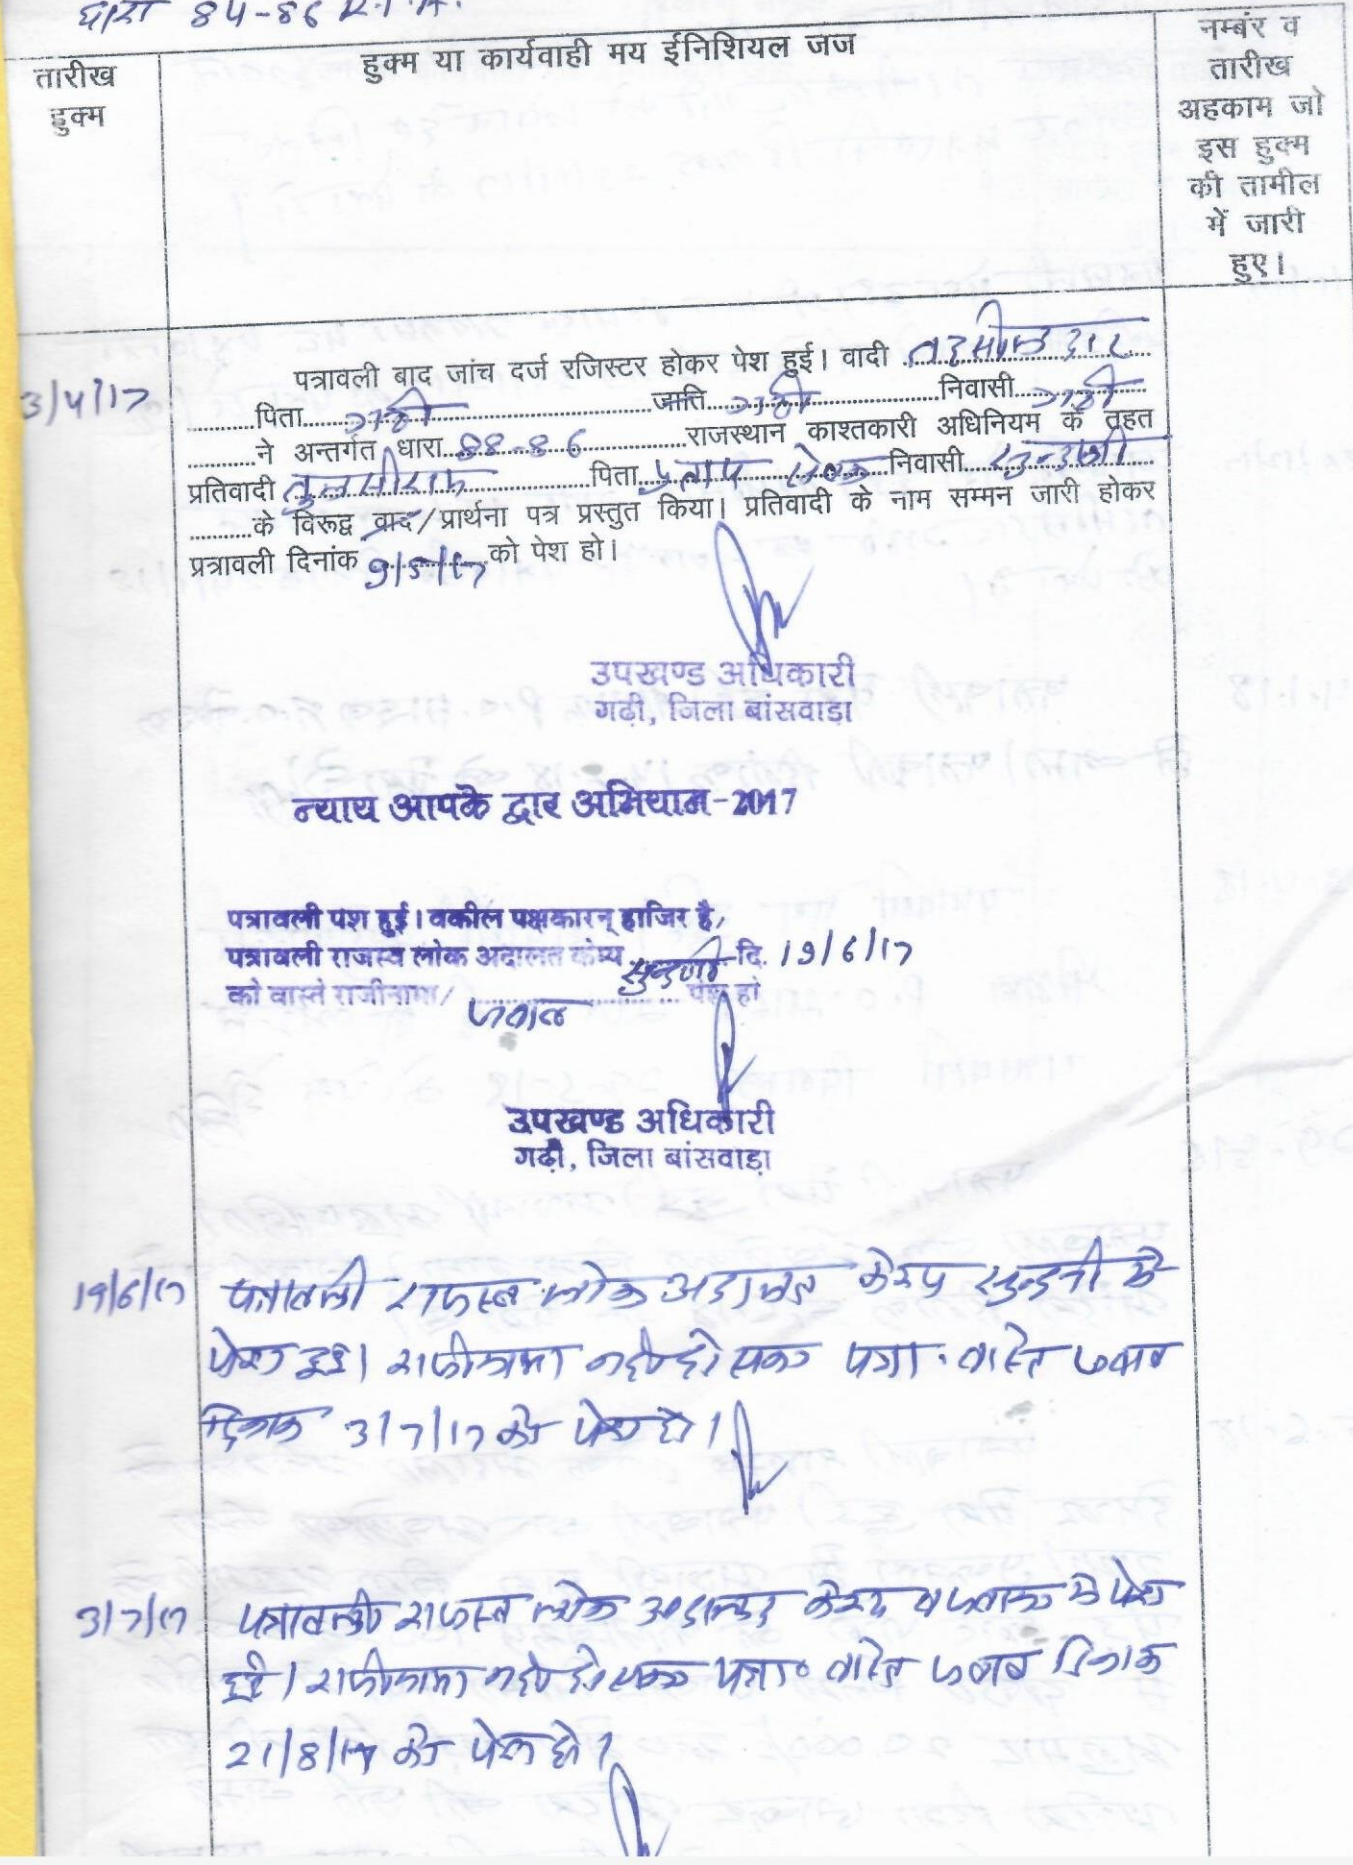 धारा 84-86 R.T.A.
तारीख हुक्म
हुक्म या कार्यवाही मय ईनिशियल जज
नम्बंर व
तारीख
अहकाम जो
इस हुक्म
की तामील
में जारी
हुए।
3/4/17
पत्रावली बाद जांच दर्ज रजिस्टर होकर पेश हुई। वादी तहसीलदार
पिता गढी जाति गढी निवासी गढी
ने अन्तर्गत धारा 88-86 राजस्थान काश्तकारी अधिनियम के तहत
प्रतिवादी तुलसीराम पिता प्रताप सेवक निवासी
के विरूद्व वाद/प्रार्थना पत्र प्रस्तुत किया। प्रतिवादी के नाम सम्मन जारी होकर
प्रत्रावली दिनांक 9/5/17 को पेश हो।
उपखण्ड अधिकारी
गढ़ी, जिला बांसवाड़ा
न्याय आपके द्वार अभियान-2017
पत्रावली पेश हुई। वकील पक्षकारन् हाजिर है,
पत्रावली राजस्व लोक अदालत केम्प सुन्दणी दि. 19/6/17
को वास्ते राजीनामा/ जवाब पेश हो
उपखण्ड अधिकारी
गढ़ी, जिला बांसवाड़ा
19/6/17 पत्रावली राजस्व लोक अदालत केम्प सुन्दनी मे
पेश हुई। राजीनामा नही हो सका पत्रा. वास्ते जवाब
दिनांक 3/7/17 को पेश हो।
3/7/17 पत्रावली राजस्व लोक अदालत केम्प मे पेश
हुई। राजीनामा नही हो सका पत्रा० वास्ते जवाब दिनांक
21/8/17 को पेश हो।